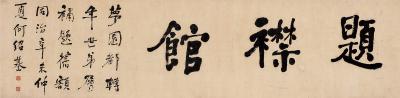 題襟館
夢園都轉
年世弟屬
補題舊額
同治辛未仲
夏何紹基